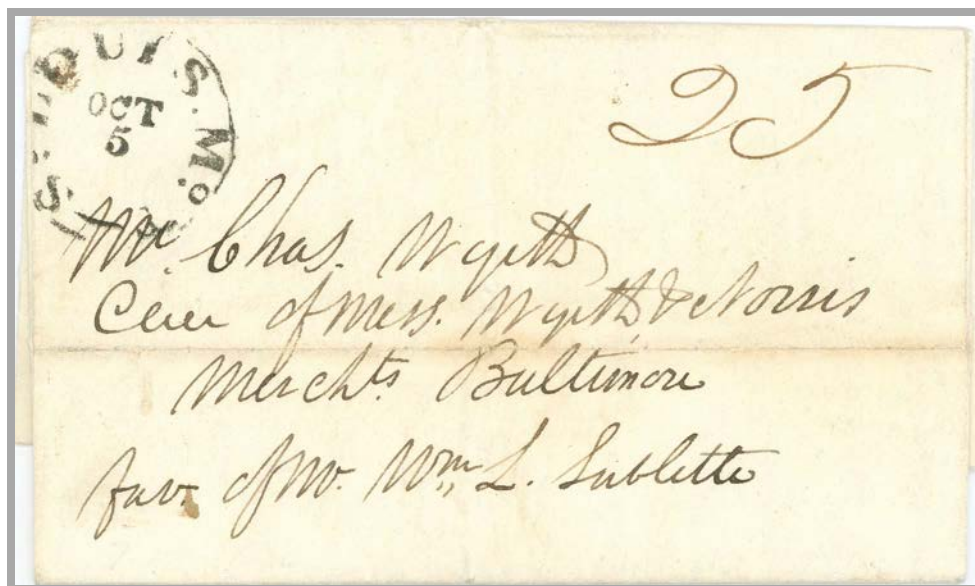 St. LOUIS. Mo.
OCT
5
25
Mr. Chas. Wyeth
Care of Mess. Wyeth & Norris
Merchts. Baltimore
fav. of Mr. Wm. L. Sublette